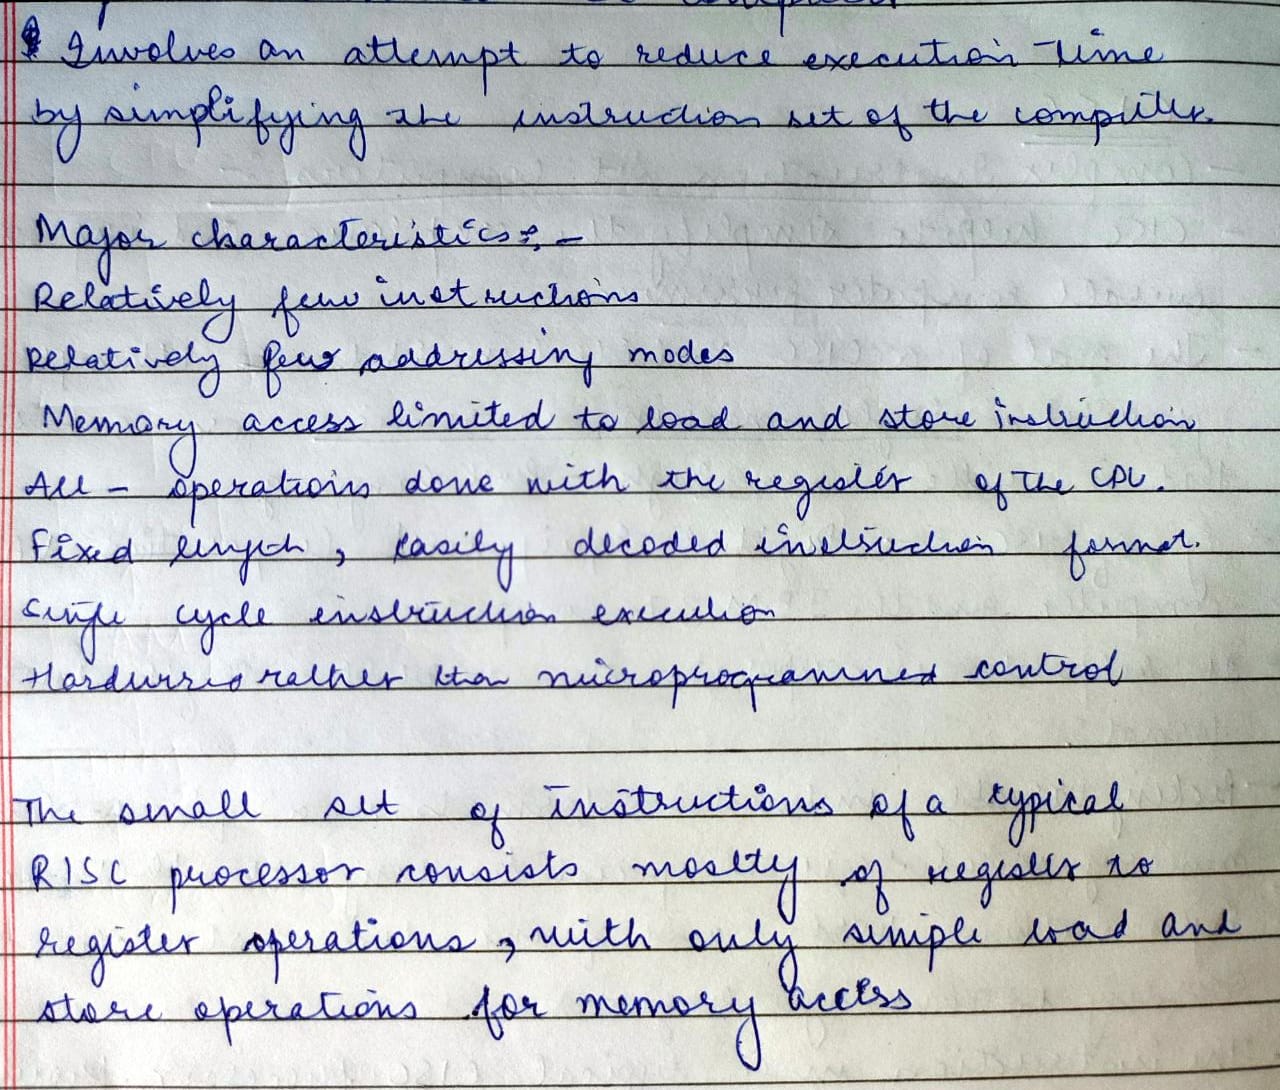 Involves an attempt to reduce execution time
by simplifying the instruction set of the computer.
Major characteristics :-
Relatively few instructions
Relatively few addressing modes
Memory access limited to load and store instruction
All - operations done with the register of the CPU.
Fixed length, easily decoded instruction format.
Single cycle instruction execution
Hardwired rather than microprogrammed control
The small set of instructions of a typical
RISC processor consists mostly of register to
register operations, with only simple load and
store operations for memory access